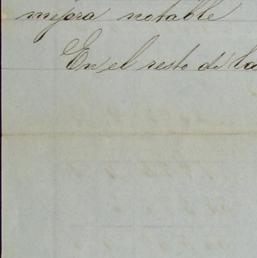 mejora notable
En el resto de la